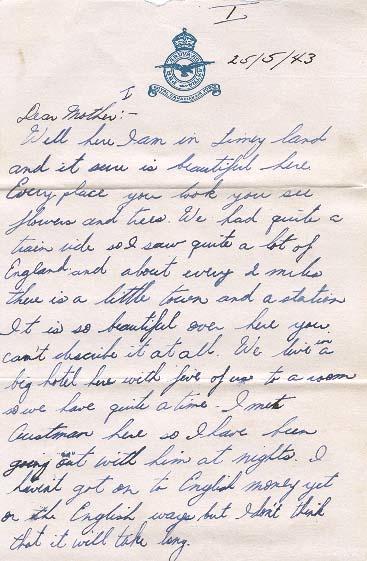 I
25/5/43
ROYAL CANADIAN AIR FORCE
I
Dear Mother:-
Well here I am in Limey land
and it sure is beautiful here
Every place you look you see
flowers and trees. We had quite a
train ride so I saw quite a lot of
England and about every 2 miles
there is a little town and a station
It is so beautiful over here you
can't describe it at all. We live in a
big hotel here with five of us to a room
so we have quite a time. I met
Custman here so I have been
going out with him at nights. I
haven't got on to English money yet
or the English ways but I don't think
that it will take long.